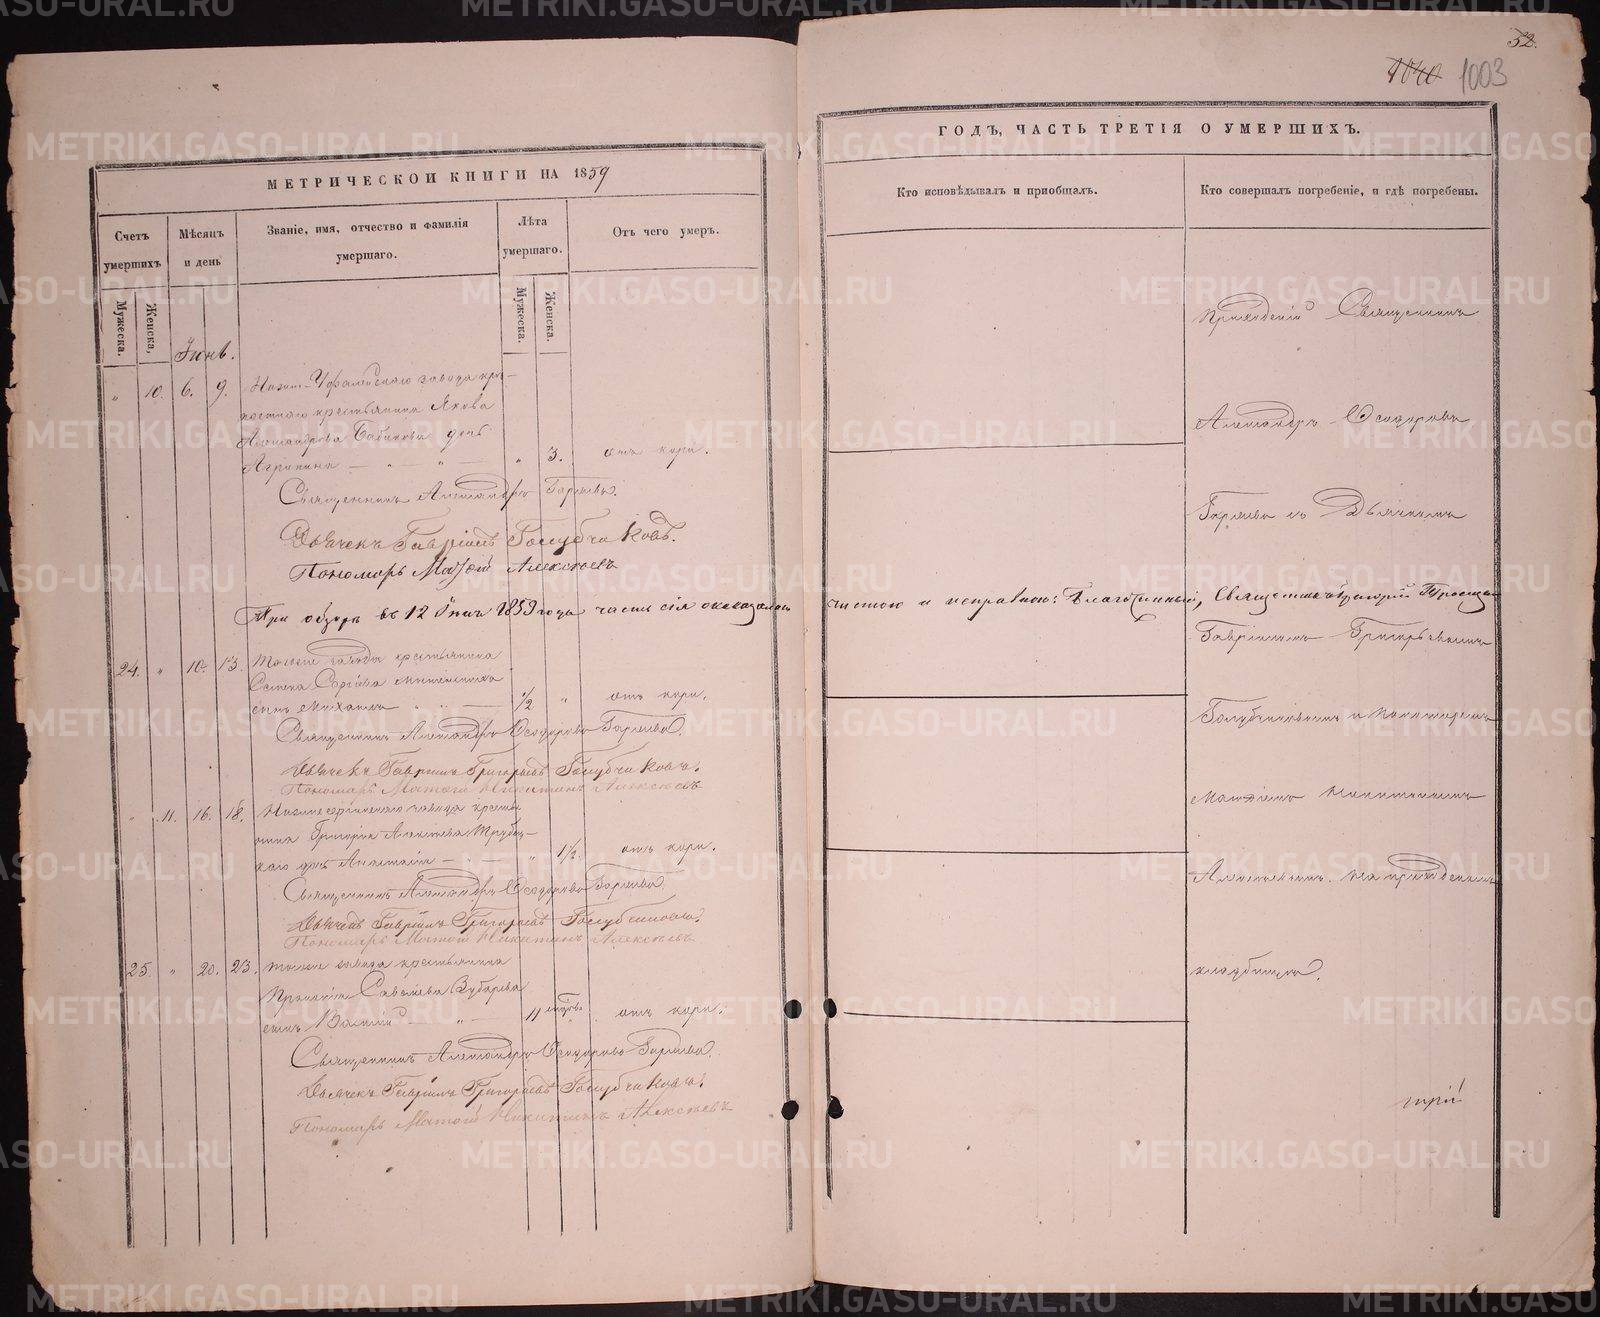 МЕТРИЧЕСКОЙ КНИГИ НА 1859
Счетъ умершихъ
Мужеска.
Женска,
Мѣсяцъ и день
Званіе, имя, отчество и фамилія умершаго.
Лѣта умершаго.
Мужеска.
Женска.
Отъ чего умеръ.
Іюнь.
" 10. 6. 9. Нижне-Уфалейскаго завода крѣ-
постнаго крестьянина Якова
Александрова Бабикова дочь
Агрипина — " — " — " 3. отъ кори.
Священникъ Александръ Гаряевъ.
Дьячекъ Гавріилъ Голубчиковъ.
Пономарь Матѳій Алексѣевъ
При обзорѣ въ 12 Іюля 1859 года часть сія оказалась
24. " 10. 13. Тогоже завода крестьянина
сынъ Михаилъ 1/2 " отъ кори.
Священникъ Александръ Ѳеодоровъ Гаряевъ.
Дьячекъ Гавріилъ Григорьевъ Голубчиковъ.
Пономарь Матѳій Никитинъ Алексѣевъ
" 11. 16. 18. Нижнесергинскаго завода крестья
нина Григорія Алексѣева Трубец-
каго дочь Анастасія — " 1 1/2. отъ кори.
Священникъ Александръ Ѳеодоровъ Гаряевъ.
Дьячекъ Гавріилъ Григорьевъ Голубчиковъ.
Пономарь Матѳій Никитинъ Алексѣевъ
25. " 20. 23. Тогоже завода крестьянина
Савельева Зубарева
сынъ Василій — " — 11 отъ кори.
Священникъ Александръ Ѳеодоровъ Гаряевъ.
Дьячекъ Гавріилъ Григорьевъ Голубчиковъ.
Пономарь Матѳій Никитинъ Алексѣевъ
32.
1040 1003
ГОДЪ, ЧАСТЬ ТРЕТІЯ О УМЕРШИХЪ.
Кто исповѣдывалъ и пріобщалъ.
Кто совершалъ погребеніе, и гдѣ погребены.
Приходскій Священникъ
Александръ Ѳеодоровъ
Гаряевъ съ Дьячкомъ
чистою и исправною: Благочинный, Священникъ Григорій
Гавріиломъ Григорьевымъ
Голубчиковымъ и пономаремъ
Матѳіемъ Никитинымъ
Алексѣевымъ на приходскомъ
кладбищѣ.
METRIKI.GASO-URAL.RU